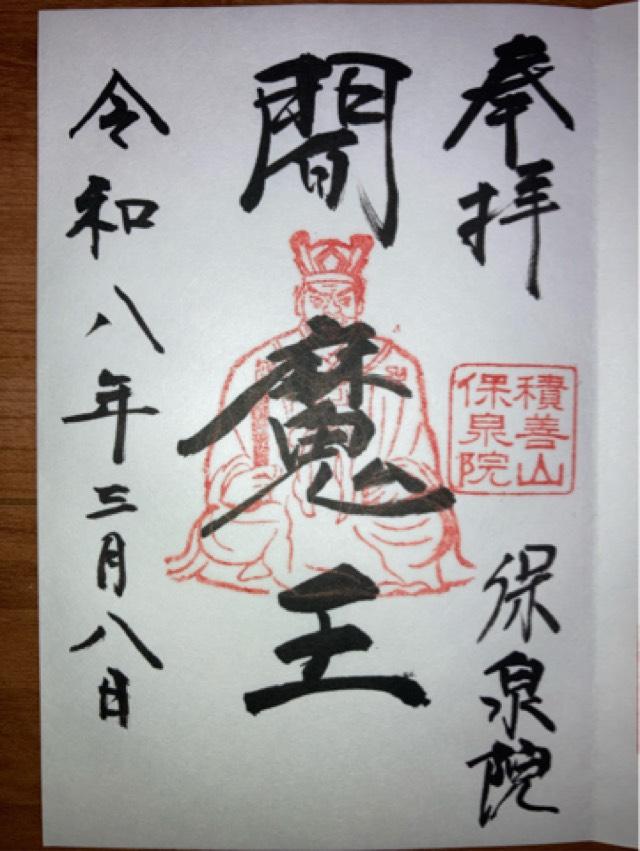 奉拝
積善山
保泉院
保泉院
閻魔王
令和八年三月八日